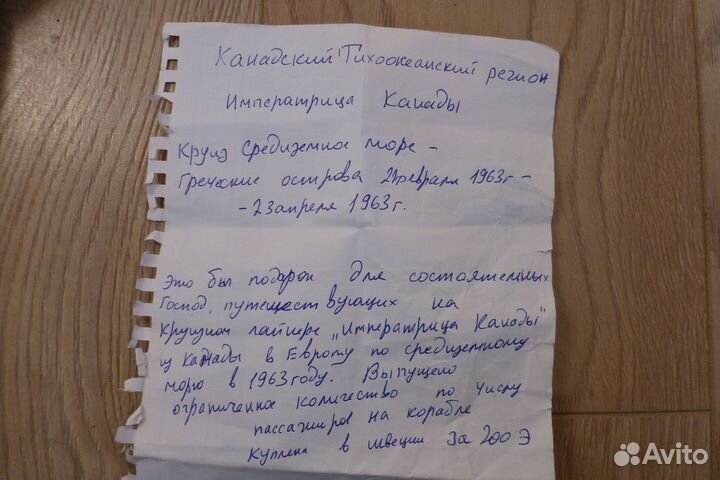 Канадский Тихоокеанский регион
Императрица Канады
Круиз Средиземное море –
Греческие острова 21 февраля 1963г –
– 23 апреля 1963г.
Это был подарок для состоятельных
Господ, путешествующих на
круизном лайнере „Императрица Канады"
из Канады в Европу по средиземному
морю в 1963 году. Выпущено
ограниченное количество по числу
пассажиров на корабле
Куплена в швеции за 200 Э
Avito